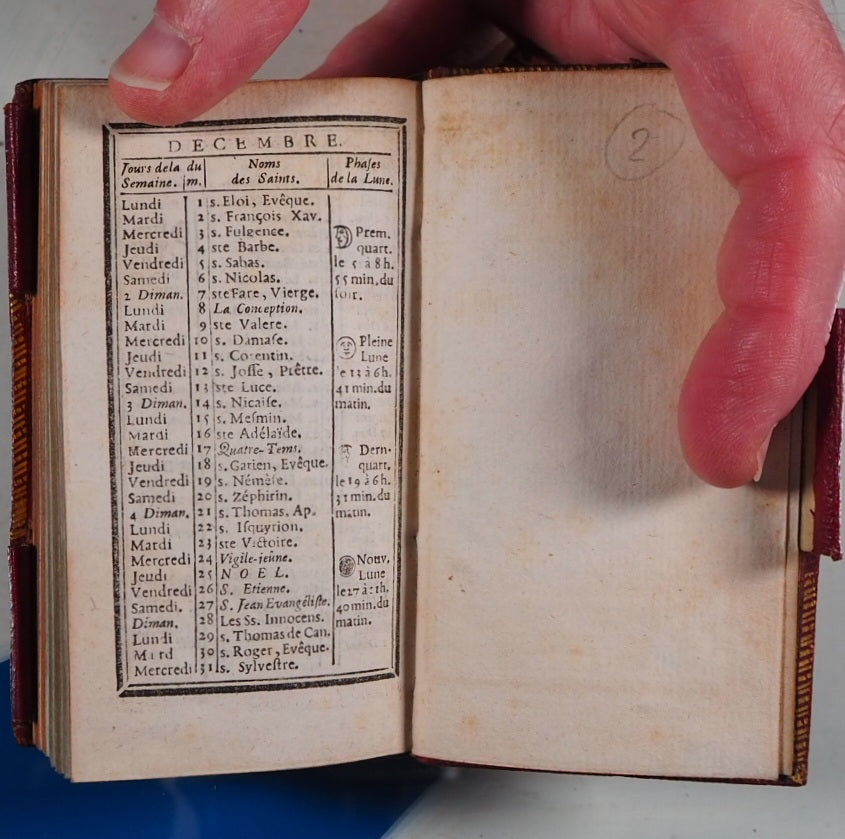 DECEMBRE.
Jours de la Semaine. du m. Noms des Saints. Phases de la Lune.
Lundi 1 s. Eloi, Evêque.
Mardi 2 s. François Xav.
Mercredi 3 s. Fulgence. Prem.
Jeudi 4 ste Barbe. quart.
Vendredi 5 s. Sabas. le 5 à 8 h.
Samedi 6 s. Nicolas. 55 min. du
2 Diman. 7 ste Fare, Vierge. soir.
Lundi 8 La Conception.
Mardi 9 ste Valere.
Mercredi 10 s. Damase. Pleine
Jeudi 11 s. Corentin. Lune
Vendredi 12 s. Josse, Prêtre. le 13 à 6h.
Samedi 13 ste Luce. 41 min. du
3 Diman. 14 s. Nicaise. matin.
Lundi 15 s. Mesmin.
Mardi 16 ste Adélaïde.
Mercredi 17 Quatre-Tems. Dern.
Jeudi 18 s. Gatien, Evêque. quart.
Vendredi 19 s. Némèse. le 19 à 6h.
Samedi 20 s. Zéphirin. 31 min. du
4 Diman. 21 s. Thomas, Ap. matin.
Lundi 22 s. Isquyrion.
Mardi 23 ste Victoire.
Mercredi 24 Vigile-jeûne. Nouv.
Jeudi 25 NOEL. Lune
Vendredi 26 S. Etienne. le 27 à
Samedi. 27 S. Jean Evangéliste. 40 min. du
Diman. 28 Les Ss. Innocens. matin.
Lundi 29 s. Thomas de Can.
M rd 30 s. Roger, Evêque.
Mercredi 31 s. Sylvestre.
2